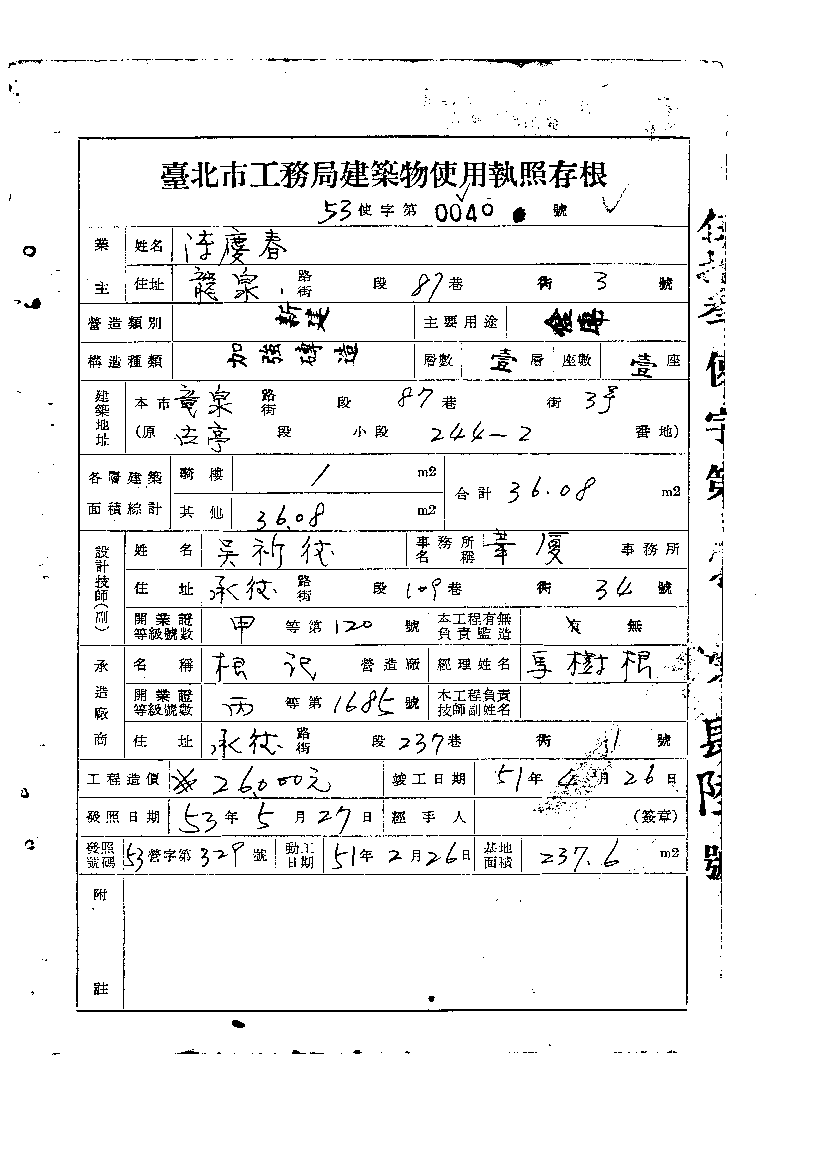 臺北市工務局建築物使用執照存根
53使字第0040號
業主 姓名 李慶春
住址 龍泉路街 段 87巷 衖 3 號
營造類別 新建 主要用途 倉庫
構造種類 加強磚造 層數 壹層 座數 壹座
建築地址 本市 龍泉路街 段 87巷 衖 3号
(原 古亭 段 小段 244-2 番地)
各層建築面積綜計 騎樓 / m2 合計 36.08 m2
其他 36.08 m2
設計技師(副) 姓名 吳祈 事務所名稱 華厦 事務所
住址 承德路街 段 109巷 衖 34 號
開業證等級號數 甲 等第 120 號 本工程有無負責監造 有 無
承造廠商 名稱 根記 營造廠 經理姓名 樹根
開業證等級號數 丙 等第 1685 號 本工程負責技師副姓名
住址 承德路街 段 237巷 衖 1 號
工程造價 26,000元 竣工日期 51年 4月 26日
發照日期 53年 5月 27日 經手人 (簽章)
發照號碼 53營字第329號 動工日期 51年 2月 26日 基地面積 237.6 m2
附註
使字第
號